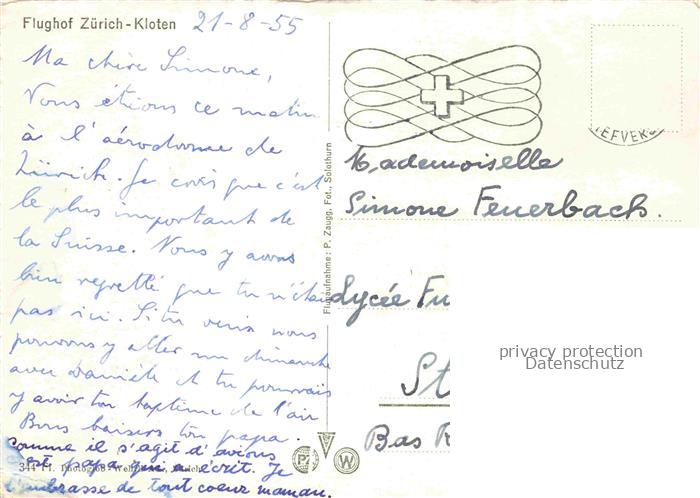 Flughof Zürich-Kloten 21-8-55
Ma chère Simone,
Nous étions ce matin
à l'aérodrome de
Zürich. Je crois que c'est
le plus important de
la Suisse. Nous y avons
bien regretté que tu n'étais
pas ici. Si tu veux nous
pouvons y aller un dimanche
avec Danièle et tu pourrais
y avoir ton baptême de l'air
Bons baisers ton papa.
comme il s'agit d'avions
c'est papa qui a écrit. Je
t'embrasse de tout coeur maman.
344 Fl.
Flugaufnahme: P. Zaugg, Fot., Solothurn
P
W
Mademoiselle
Simone Feuerbach.
Lycée Fu
St
Bas R
privacy protection
Datenschutz